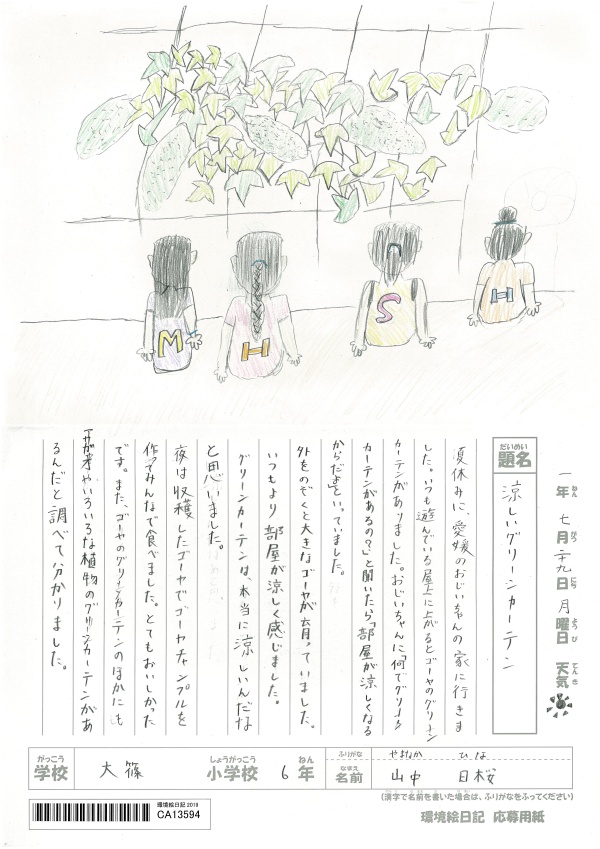 M
H
S
H
一年 七月二十九日 月曜日 天気
ねん がつ にち ようび てんき
だいめい
題名
涼しいグリーンカーテン
夏休みに、愛媛のおじいちゃんの家に行きま
した。いつも遊んでいる屋上に上がるとゴーヤのグリーン
カーテンがありました。おじいちゃんに「何でグリーン
カーテンがあるの?」と聞いたら「部屋が涼しくなる
からだよ」といっていました。
外をのぞくと大きなゴーヤが育っていました。
いつもより部屋が涼しく感じました。
グリーンカーテンは、本当に涼しいんだな
と思いました。
夜は収穫したゴーヤでゴーヤチャンプルを
作ってみんなで食べました。とてもおいしかった
です。また、ゴーヤのグリーンカーテンのほかにも
やいろいろな植物のグリーンカーテンがあ
るんだと調べて分かりました。
がっこう
学校
大篠
しょうがっこう
小学校
6
ねん
年
ふりがな
なまえ
名前
やまなか ひな
山中 日桜
(漢字で名前を書いた場合は、ふりがなをふってください)
環境絵日記 2019
CA13594
環境絵日記 応募用紙